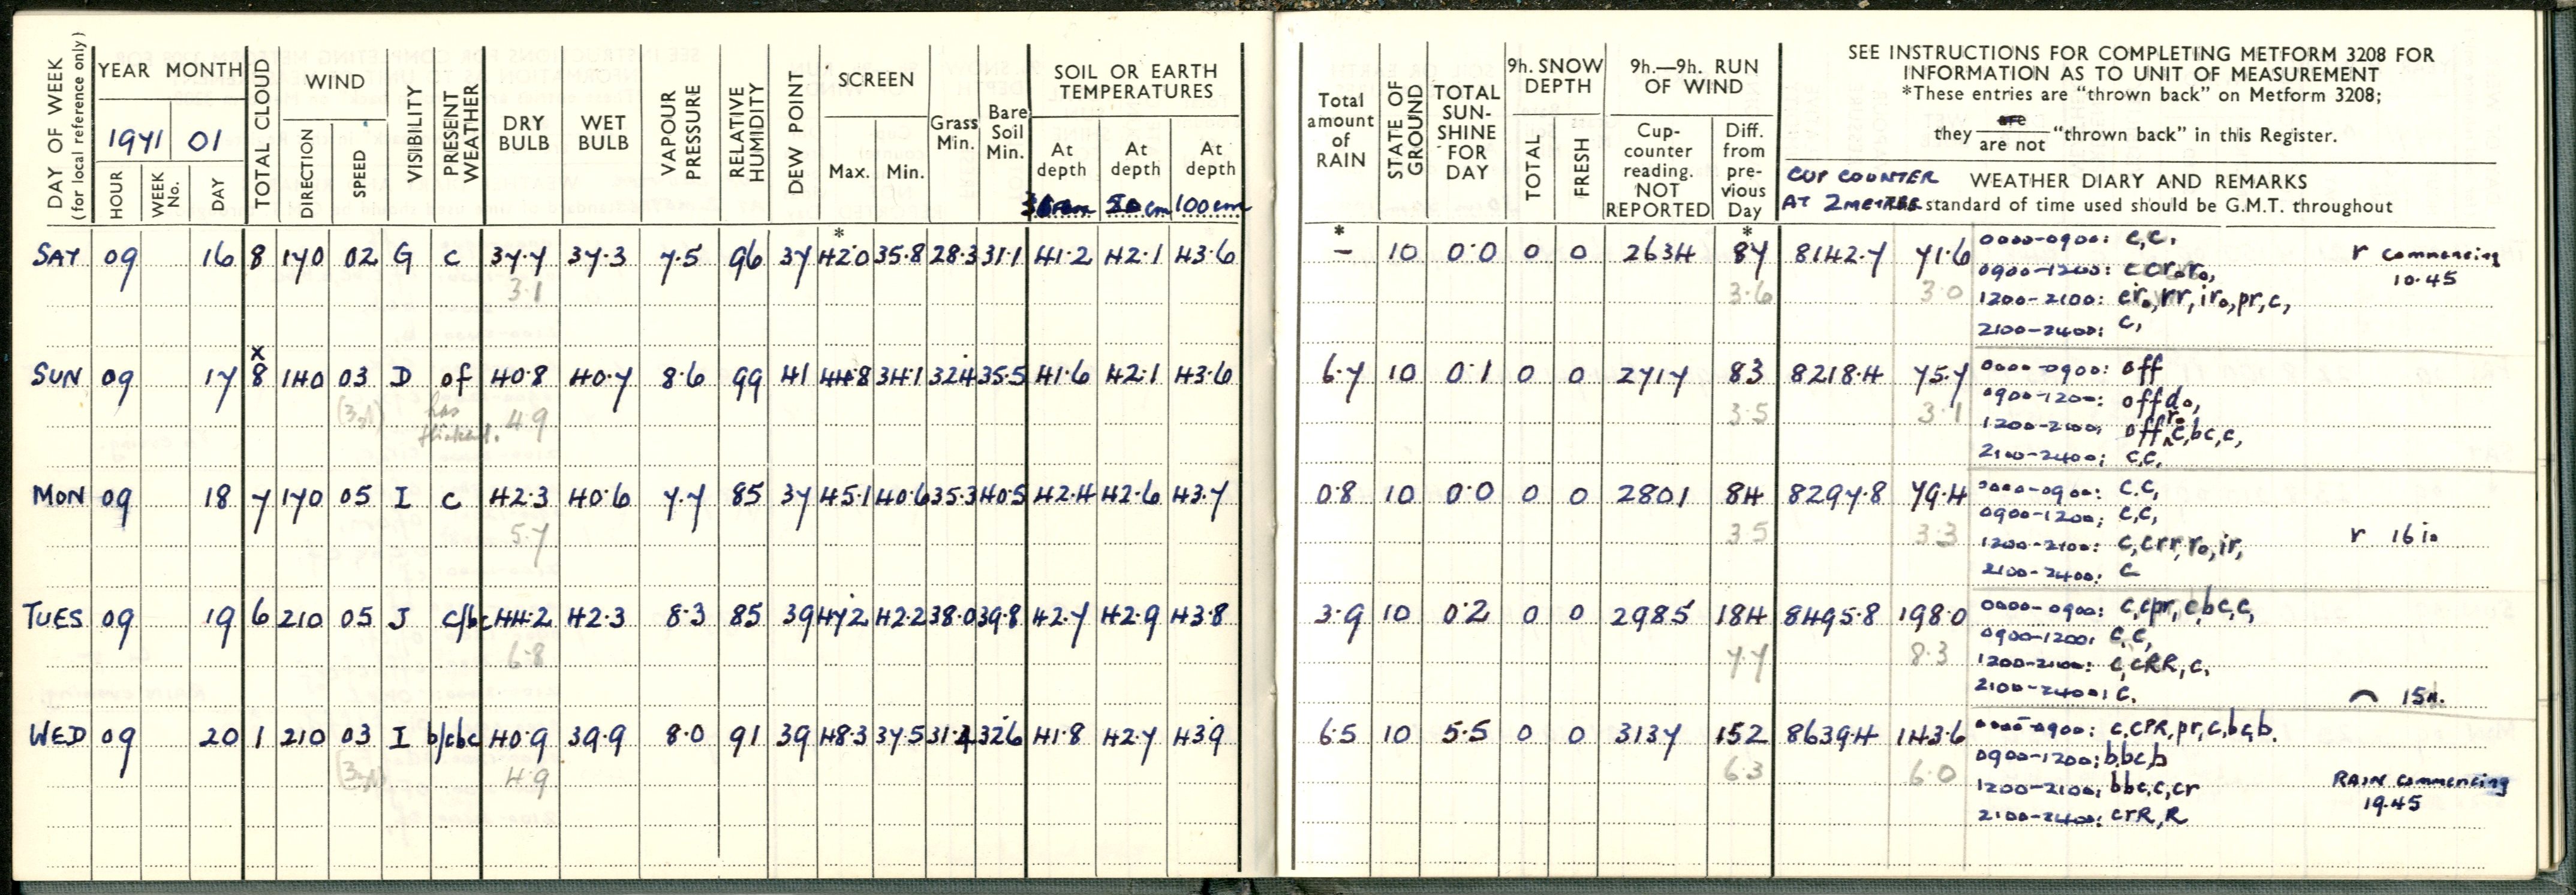 DAY OF WEEK
(for local reference only)
YEAR MONTH
1971 01
HOUR
WEEK No.
DAY
TOTAL CLOUD
WIND
DIRECTION
SPEED
VISIBILITY
PRESENT WEATHER
DRY BULB
WET BULB
VAPOUR PRESSURE
RELATIVE HUMIDITY
DEW POINT
SCREEN
Max. Min.
Grass Min.
Bare Soil Min.
SOIL OR EARTH TEMPERATURES
At depth At depth At depth
cm 100 cm
Total amount of RAIN
STATE OF GROUND
TOTAL SUN-SHINE FOR DAY
9h. SNOW DEPTH
TOTAL
FRESH
9h.—9h. RUN OF WIND
Cup-counter reading. NOT REPORTED
Diff. from pre-vious Day
SEE INSTRUCTIONS FOR COMPLETING METFORM 3208 FOR
INFORMATION AS TO UNIT OF MEASUREMENT
*These entries are “thrown back” on Metform 3208;
they are / are not “thrown back” in this Register.
CUP COUNTER WEATHER DIARY AND REMARKS
AT 2 METRES standard of time used should be G.M.T. throughout
* * *
SAT 09 16 8 170 02 G c 37.7 37.3 7.5 96 37 42.0 35.8 28.3 31.1 41.2 42.1 43.6 – 10 0.0 0 0 2634 87 8142.7 71.6 0000-0900: c,c,
0900-1200: r commencing
3.1 3.6 3.0 10.45
1200-2100:
2100-2400: c,
x
SUN 09 17 8 140 03 D of 40.8 40.7 8.6 99 41 44.8 34.1 32.4 35.5 41.6 42.1 43.6 6.7 10 0.1 0 0 2717 83 8218.4 75.7 0000-0900: off
0900-1200: offdo,
has thickened. 4.9 3.5 3.1
1200-2100: off,c,bc,c,
2100-2400; c,c,
MON 09 18 7 170 05 I c 42.3 40.6 7.7 85 37 45.1 40.6 35.3 40.5 42.4 42.6 43.7 0.8 10 0.0 0 0 2801 84 8297.8 79.4 0000-0900: c.c,
0900-1200; c,c,
5.7 3.5 3.3
1200-2100: c,crr,ro,ir, r
2100-2400: c
TUES 09 19 6 210 05 J c/bc 44.2 42.3 8.3 85 39 47.2 42.2 38.0 39.8 42.7 42.9 43.8 3.9 10 0.2 0 0 2985 184 8495.8 198.0 0000-0900: c,cpr,cbc,c,
0900-1200: c,c,
6.8 7.7 8.3
1200-2100: c,cRR,c,
2100-2400: c.
WED 09 20 1 210 03 I b/cbc 40.9 39.9 8.0 91 39 48.3 37.5 31.2 32.6 41.8 42.7 43.9 6.5 10 5.5 0 0 3137 152 8639.4 143.6 0000-0900: c,cPR,pr,c,bc,b.
0900-1200; b,bc,b
4.9 6.3 6.0
1200-2100; bbc,c,cr RAIN commencing
19.45
2100-2400: crR,R